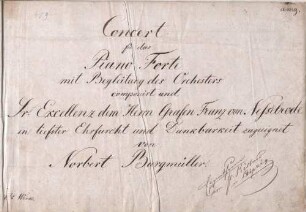 Concert
für das
Piano Forte
mit Begleitung des Orchesters
componirt und
Sr Excellenz dem Herrn Grafen Franz von Nesselrode
in tiefster Ehrfurcht und Dankbarkeit zugeeignet
von
Norbert Burgmüller.